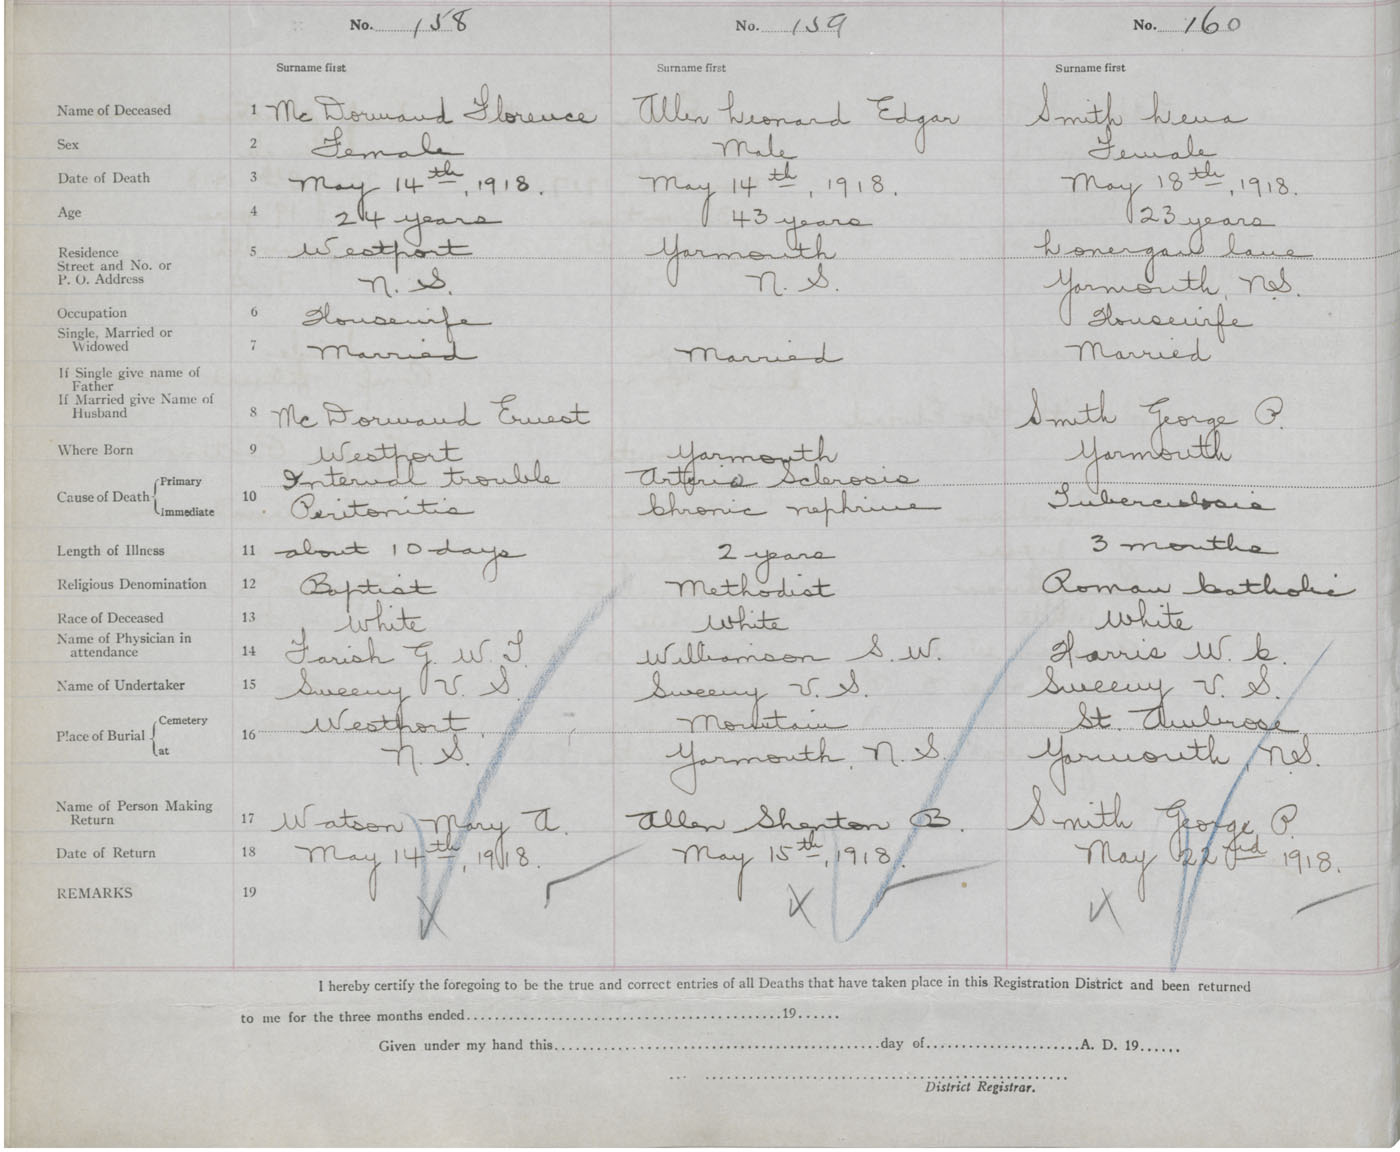 No. 158 No. 159 No. 160
Surname first Surname first Surname first
Name of Deceased 1 Mc Dormand Florence Allen Leonard Edgar Smith Lena
Sex 2 Female Male Female
Date of Death 3 May 14th, 1918. May 14th, 1918. May 18th, 1918.
Age 4 24 years 43 years 23 years
Residence 5 Westport Yarmouth Lonergan Lane
Street and No. or
P. O. Address N. S. N. S. Yarmouth, N.S.
Occupation 6 Housewife Housewife
Single, Married or
Widowed 7 Married Married Married
If Single give name of
Father
If Married give Name of
Husband 8 Mc Dormand Ernest Smith George P.
Where Born 9 Westport Yarmouth Yarmouth
Cause of Death Primary Interval trouble Arterio Sclerosis
10 Immediate Peritonitis Chronic Tuberculosis
Length of Illness 11 about 10 days 2 years 3 months
Religious Denomination 12 Baptist Methodist Roman Catholic
Race of Deceased 13 White White White
Name of Physician in
attendance 14 Farish G. W. T. Williamson S. W. Harris W. C.
Name of Undertaker 15 Sweeny V. S. Sweeny V. S. Sweeny V. S.
Place of Burial Cemetery 16 Westport, Mountain St. Ambrose
at N. S. Yarmouth, N. S. Yarmouth, N.S.
Name of Person Making
Return 17 Watson Mary A. Allen Shenton B. Smith George P.
Date of Return 18 May 14th, 1918. May 15th, 1918. May 22nd 1918.
REMARKS 19 X X X
I hereby certify the foregoing to be the true and correct entries of all Deaths that have taken place in this Registration District and been returned
to me for the three months ended..........19......
Given under my hand this..........day of..........A. D. 19......
District Registrar.